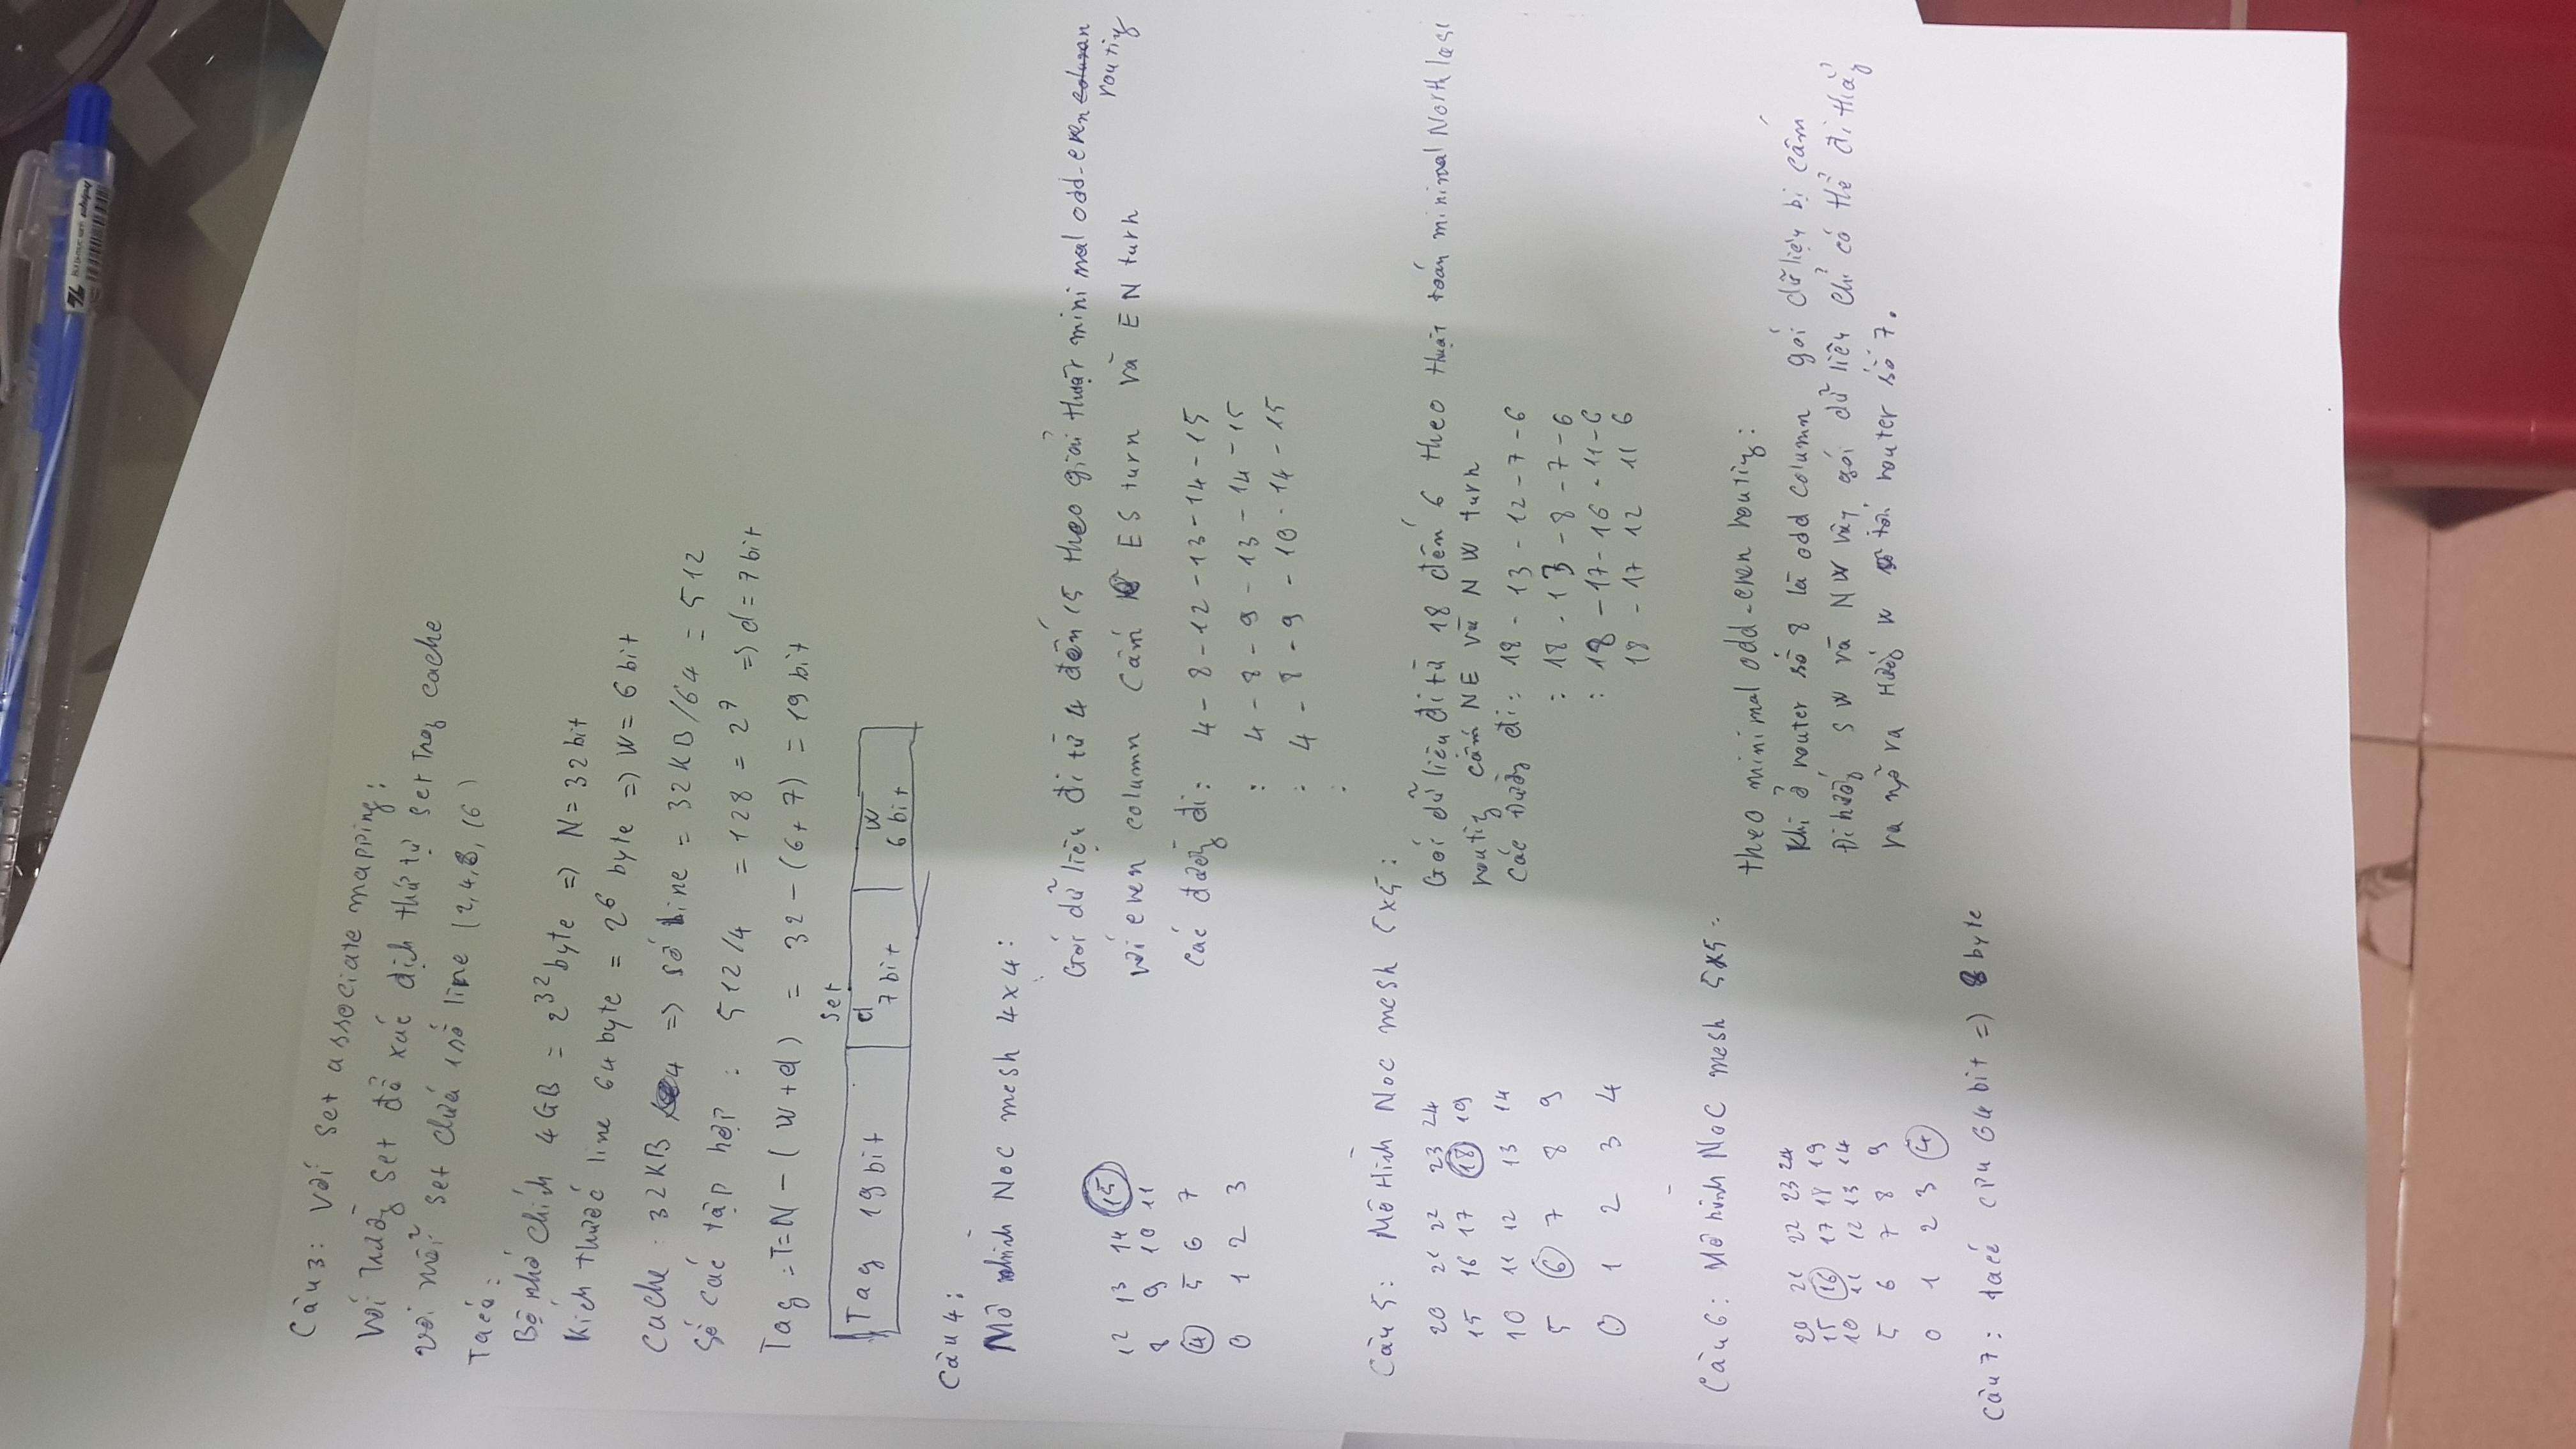 Câu 3: Với set associate mapping:
Với trường set để xác định thứ tự set trong cache
với mỗi set chứa 1 số line (2,4,8,16)
Ta có:
Bộ nhớ chính 4GB = 2^32 byte => N = 32 bit
Kích thước line 64 byte = 2^6 byte => W = 6 bit
Cache : 32KB 4 => số line = 32KB/64 = 512
Số các tập hợp : 512/4 = 128 = 2^7 => d = 7 bit
Tag : T = N - (W + d) = 32 - (6 + 7) = 19 bit
Set
Tag 19 bit d 7 bit W 6 bit
Câu 4:
Mô hình NoC mesh 4x4:
12 13 14 15
8 9 10 11
4 5 6 7
0 1 2 3
Gói dữ liệu đi từ 4 đến 15 theo giải thuật minimal odd-even routing
với even column cấm ES turn và EN turn
Các đường đi: 4 - 8 - 12 - 13 - 14 - 15
: 4 - 8 - 9 - 13 - 14 - 15
: 4 - 8 - 9 - 10 - 14 - 15
:
Câu 5: Mô Hình NoC mesh 5x5:
20 21 22 23 24
15 16 17 18 19
10 11 12 13 14
5 6 7 8 9
0 1 2 3 4
Gói dữ liệu đi từ 18 đến 6 theo thuật toán minimal North last
routing cấm NE và NW turn
Các Đường đi: 18 - 13 - 12 - 7 - 6
: 18 - 13 - 8 - 7 - 6
: 18 - 17 - 16 - 11 - 6
18 - 17 12 11 6
Câu 6: Mô hình NoC mesh 5x5:
20 21 22 23 24
15 16 17 18 19
10 11 12 13 14
5 6 7 8 9
0 1 2 3 4
theo minimal odd-even routing:
Khi ở router số 8 là odd column gói dữ liệu bị cấm
Đi hướng SW và NW vậy gói dữ liệu chỉ có thể đi thẳng
ra ngõ ra Hướng W tới router số 7.
Câu 7: ta có CPU 64 bit => 8 byte